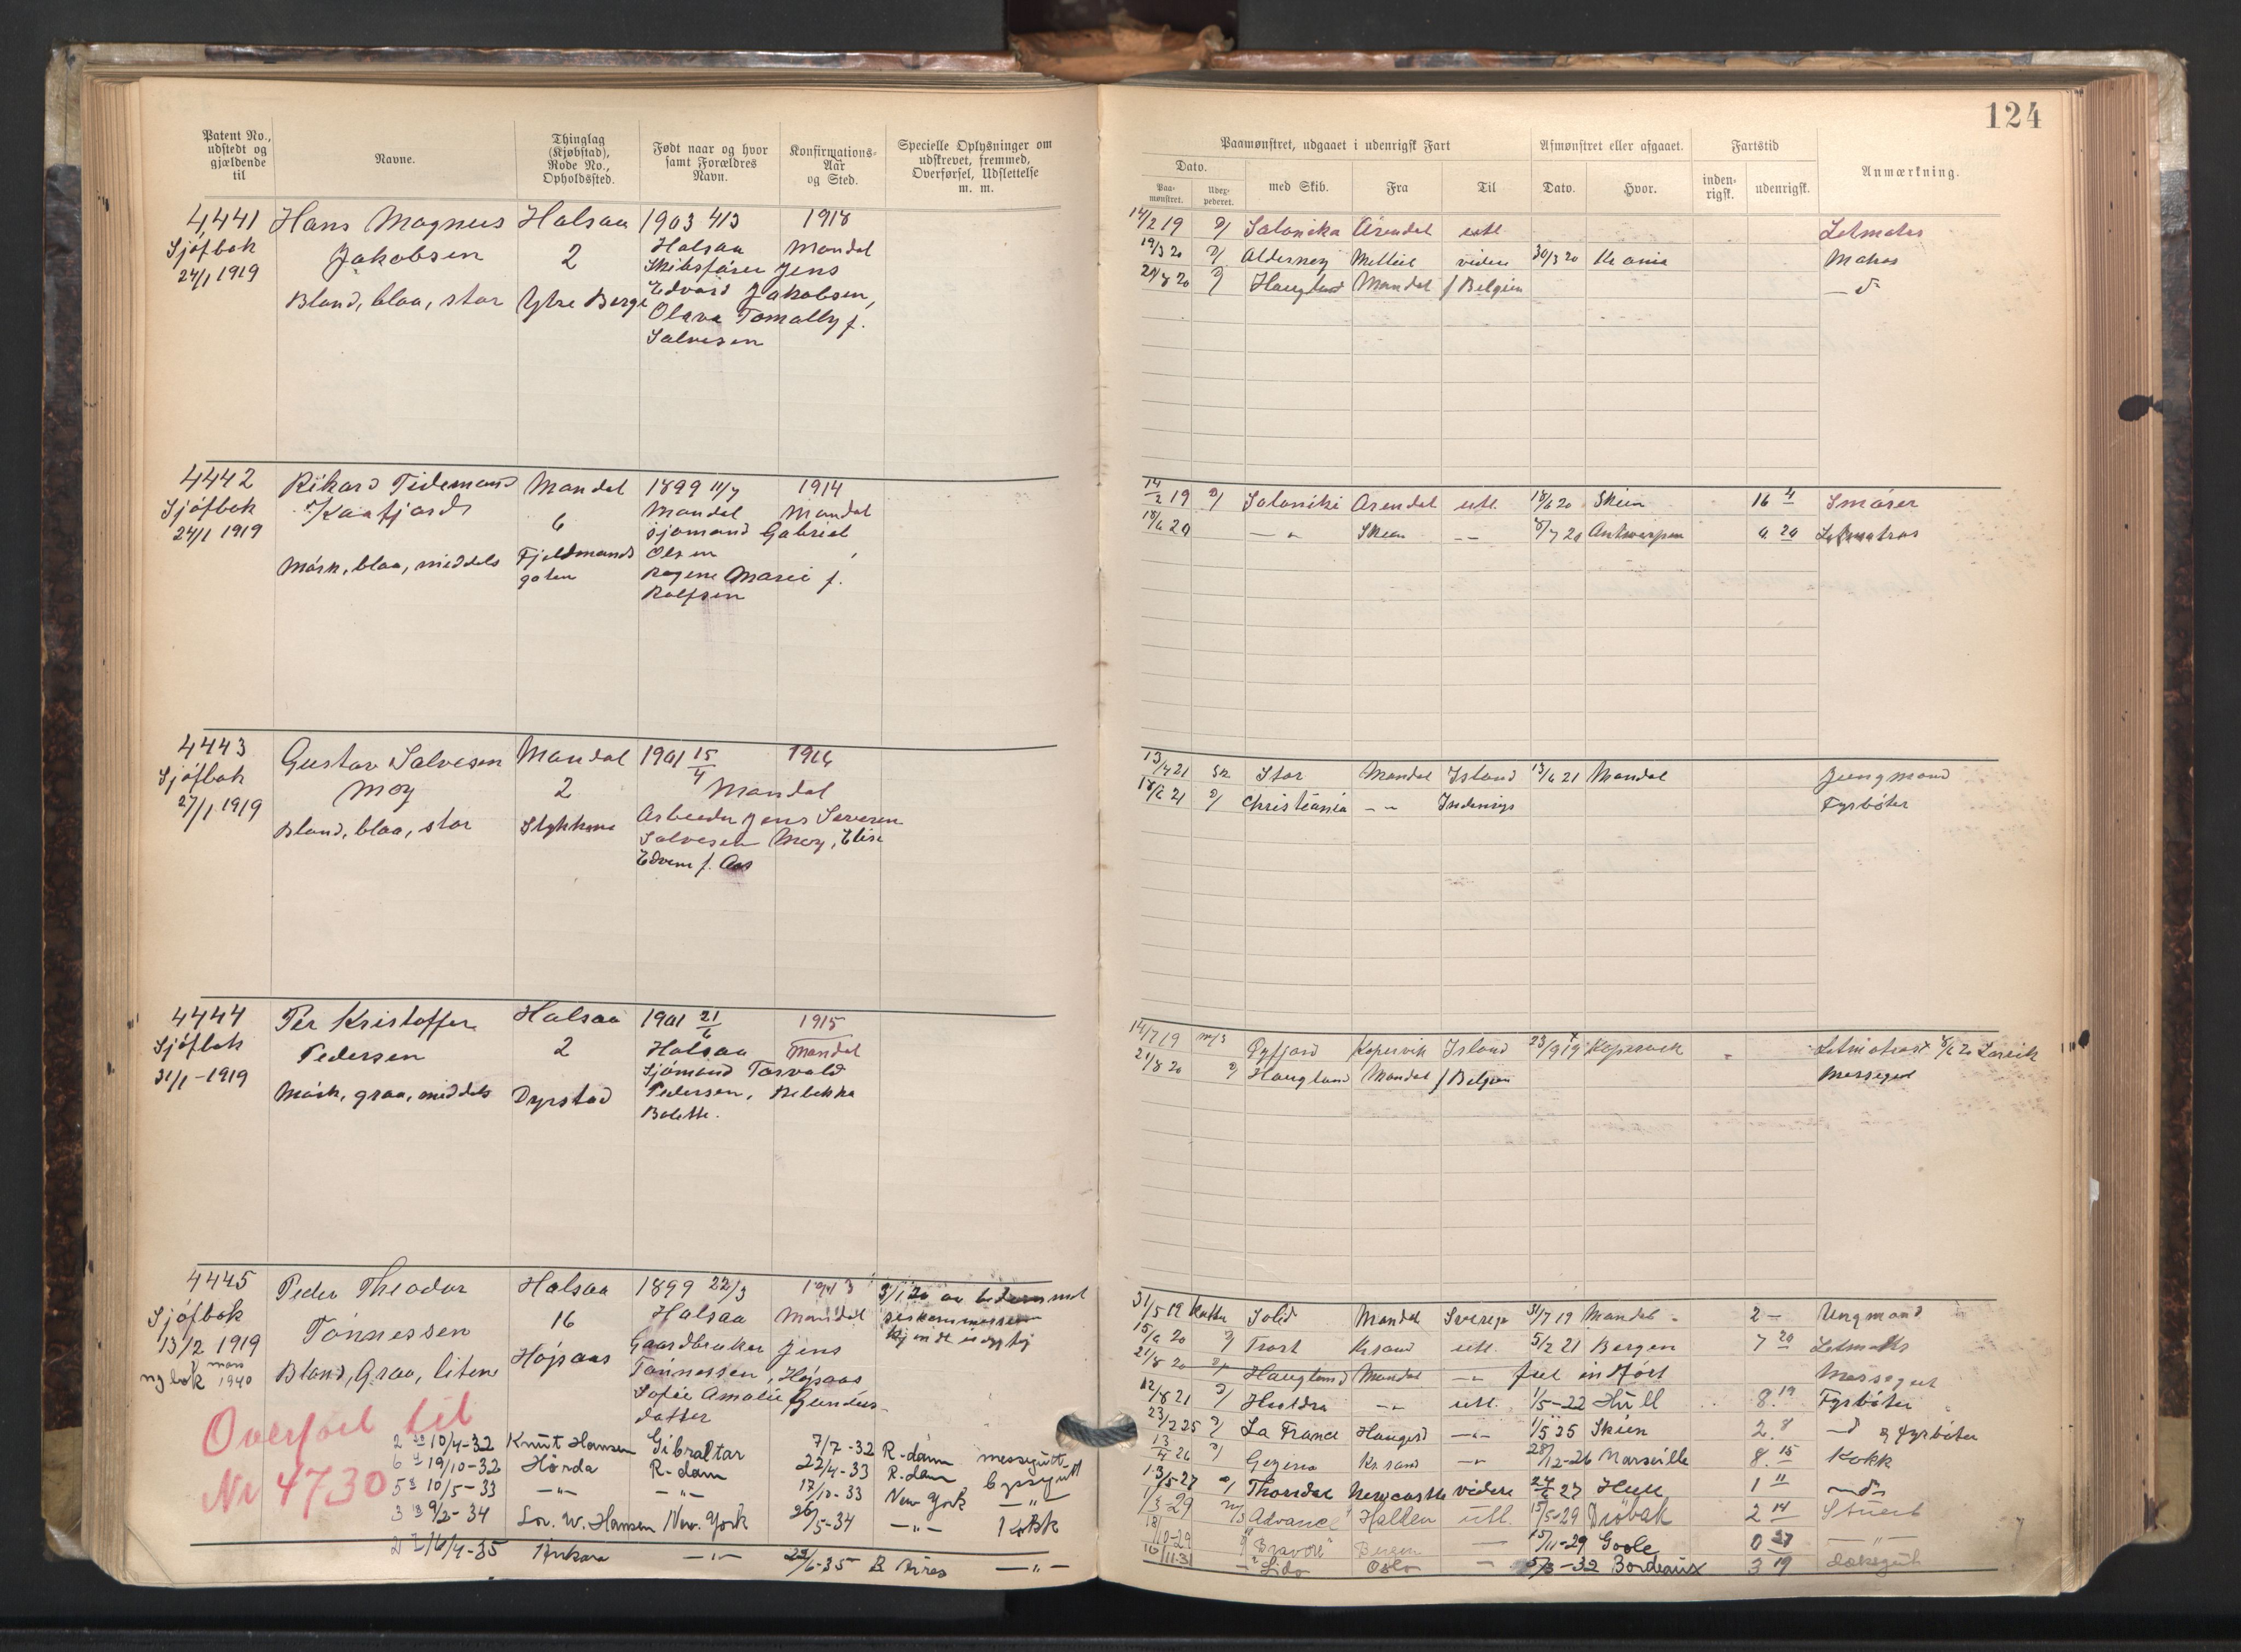 124
Patent No., udstedt og gjældende til
Navne.
Thinglag (Kjøbstad), Rode No., Opholdssted.
Født naar og hvor samt Forældres Navn.
Konfirmations-Aar og Sted.
Specielle Oplysninger om udskrevet, fremmed, Overførsel, Udslettelse m. m.
Paamønstret, udgaaet i udenrigsk Fart
Afmønstret eller afgaaet.
Fartstid
Anmærkning.
Dato.
Paa-mønstret.
Uder-pederet.
med Skib.
Fra
Til
Dato.
Hvor.
inden-rigsk.
udenrigsk.
4441 Hans Magnus Halsaa 1903 4/3 1918
Sjøfbok Jakobsen 2 Halsaa Mandal
24/1 1919 Skibsfører Jens
Blond, blaa, stor Ytre Berge Edvard Jakobsen,
Olava Tomally f.
Salvesen
14/2 19 D/ Salonika Arendal utl Letmatros
19/3 20 D/ Alderney Melbiel videre 30/3 20 Kr ania Matros
21/8 20 D/ Haugland Mandal f/Belgien
4442 Rikard Tidemand Mandal 1899 11/7 1914
Sjøfbok Kaafjord 6 Mandal Mandal
24/1 1919 sjømand Gabriel
Mørk, blaa, middels Fjeldmands Olsen
gaten Ragene Marie f.
Rolfsen
14/2 19 D/ Saloniki Arendal utl. 18/6 20 Skien 16 4 Smører
18/6 20 — " Skien — 8/7 20 Antwerpen 0 20 Letmatros
4443 Gustav Salvesen Mandal 1901 15/4 1916
Sjøfbok Moy 2 Mandal
27/1 1919 Arbeider Jens Severen
Blond, blaa, stor Stykkene Salvesen Moy, Elise
Edvene f. Aas
13/4 21 Sk Stor Mandal Island 13/6 21 Mandal Jungmand
18/6 21 D/ Christiania — " Indenrigs Fyrbøter
4444 Per Kristoffer Halsaa 1901 21/6 1915
Sjøfbok Pedersen 2 Halsaa Mandal
31/1 - 1919 Sjømand Torvald
Mørk, graa, middels Dyrstad Pedersen, Rebekka
Bolette.
14/7 19 m/s Øyfjord Kopervik Island 23/9 19 Kopervik Letmatros
21/8 20 D/ Haugland Mandal f/Belgien Messegut
4445 Peder Theodor Halsaa 1899 22/3 1913
Sjøfbok Tønnessen 16 Halsaa Mandal
13/2 1919 Gaardbruker Jens
ny bok mars 1940 Blond, Graa, liten Højsaas Tønnessen, Højsaas
Sofie Amalie Gundersdatter
Overført til
Nr 4730
10/4-32 Knut Hansen Gibraltar 7/7-32 R-dam messegutt
19/10-32 Hörda R-dam 22/4-33 R-dam byssgutt
10/5-33 —"— —"— 17/10-33 New York —"—
9/2-34 Lor. W. Hansen New York 26/5-34 —"— 1 Kokk
16/4-35 Ankara —"— 22/6-35 B Aires —"—
31/5 19 Kutter Solid Mandal Sverige 31/7 19 Mandal 2 — Ungmand
15/6 20 D/ Trost Kr sand utl. 5/2 21 Bergen 7 20 Letmatros
21/8 20 D/ Haugland Mandal — " feil indført Messegut
12/8 21 D/ Huldra — " utl. 1/5-22 Hull 8. 19 Fyrbøter
23/2 25 D/ La France Haugesd — 1/5 25 Skien 2. 8 fyrbøter
13/4 26 D/ Kr. sand — 28/12-26 Marseille 8. 15 Kokk
13/5-27 D/ Thorsdal Newcastle videre 24/6 27 Hull 1 11
1/3-29 m/s "Advance" Halden utl. 15/5-29 Drøbak 2 14 Stuert
18/10-29 "Bravore" Bergen — 15/11-29 Goole 0 27 —"—
16/11-31 Lido Oslo — 5/3-32 Bordeaux 3 19